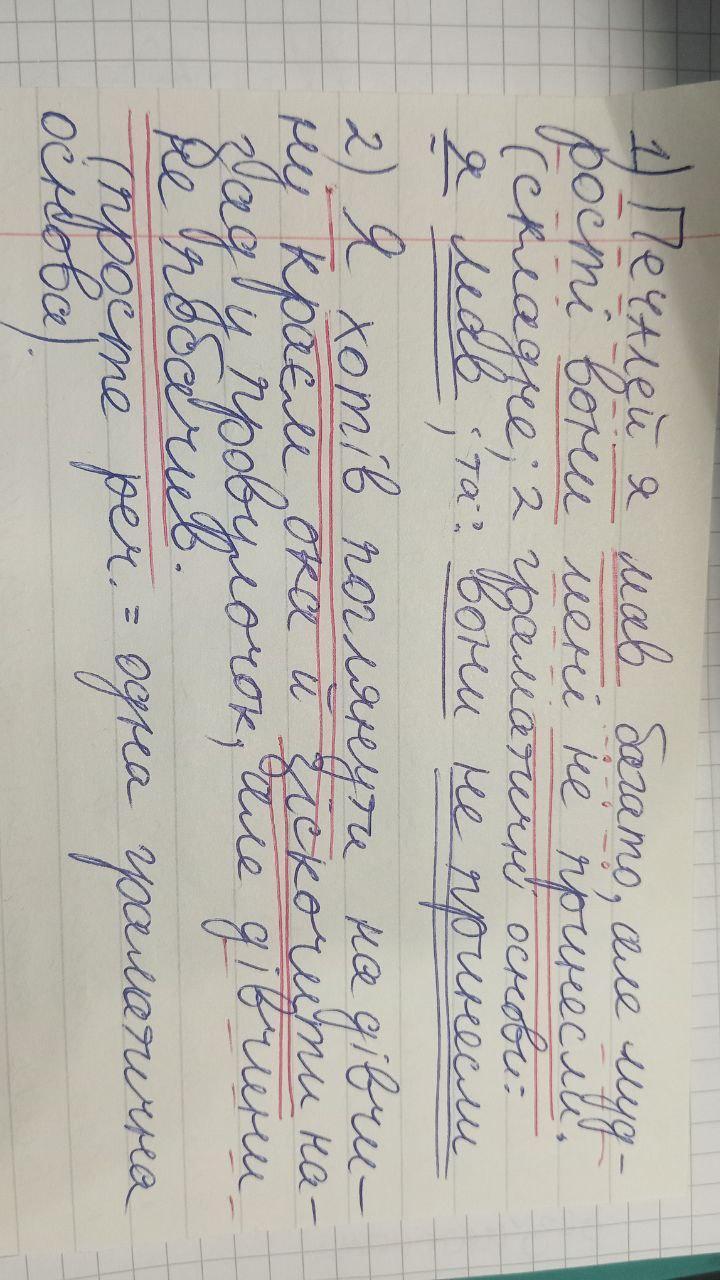 1) Печалей я мав багато, але муд-
рості вони мені не принесли.
(складне, 2 граматичні основи:
я мав, "та" вони не принесли
2) Я хотів поглянути на дівчи-
ну краєм ока й зіскочити на-
зад у провулочок, але дівчини
не побачив.
(просте реч. = одна граматична
основа).